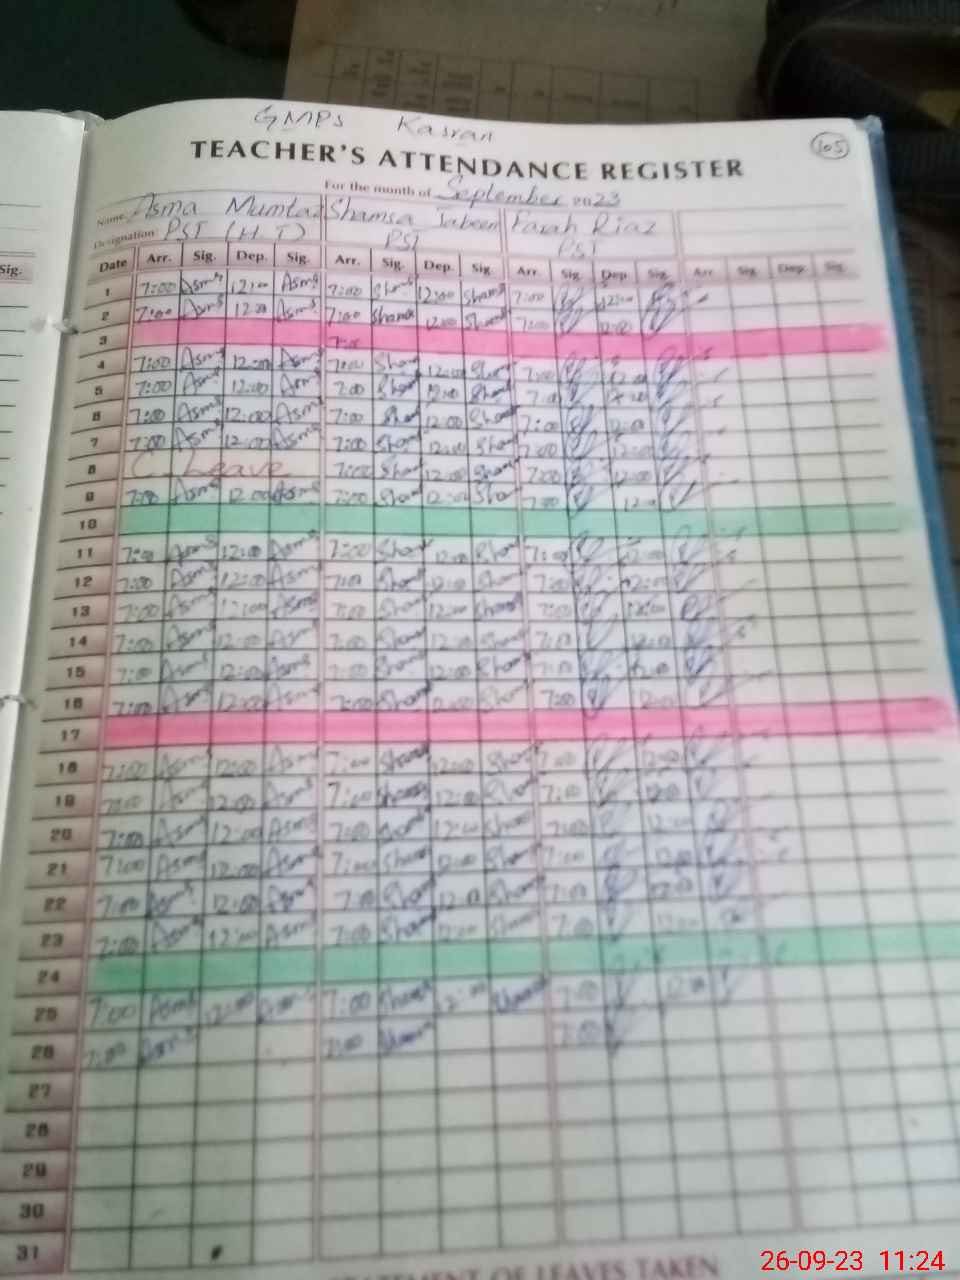 GMPS Kasran
105
TEACHER'S ATTENDANCE REGISTER
For the month of September 2023
Name Asma Mumtaz Shamsa Jabeen Farah Riaz
Designation PST (H.T) PST PST
Sig.
Date Arr. Sig. Dep. Sig. Arr. Sig. Dep. Sig. Arr. Sig. Dep. Sig. Arr. Sig. Dep. Sig.
1 7:00 Asma 12:00 Asma 7:00 Sham 12:00 Sham 7:00 12:00
2 7:00 Asma 12:00 Asma 7:00 Sham 12:00 Sham 7:00 12:00
3 7:00
4 7:00 Asma 12:00 Asma 7:00 Sham 12:00 Sham 7:00 12:00
5 7:00 Asma 12:00 Asma 7:00 Sham 12:00 Sham 7:00 12:00
6 7:00 Asma 12:00 Asma 7:00 Sham 12:00 Sham 7:00 12:00
7 7:00 Asma 12:00 Asma 7:00 Sham 12:00 Sham 7:00 12:00
8 C. Leave 7:00 Sham 12:00 Sham 7:00 12:00
9 7:00 Asma 12:00 Asma 7:00 Sham 12:00 Sham 7:00 12:00
10
11 7:00 Asma 12:00 Asma 7:00 Sham 12:00 Sham 7:00 12:00
12 7:00 Asma 12:00 Asma 7:00 Sham 12:00 Sham 7:00 12:00
13 7:00 Asma 12:00 Asma 7:00 Sham 12:00 Sham 7:00 12:00
14 7:00 Asma 12:00 Asma 7:00 Sham 12:00 Sham 7:00 12:00
15 7:00 Asma 12:00 Asma 7:00 Sham 12:00 Sham 7:00 12:00
16 7:00 Asma 12:00 Asma 7:00 Sham 12:00 Sham 7:00 12:00
17
18 7:00 Asma 12:00 Asma 7:00 Sham 12:00 Sham 7:00 12:00
19 7:00 Asma 12:00 Asma 7:00 Sham 12:00 Sham 7:00 12:00
20 7:00 Asma 12:00 Asma 7:00 Sham 12:00 Sham 7:00 12:00
21 7:00 Asma 12:00 Asma 7:00 Sham 12:00 Sham 7:00 12:00
22 7:00 Asma 12:00 Asma 7:00 Sham 12:00 Sham 7:00 12:00
23 7:00 Asma 12:00 Asma 7:00 Sham 12:00 Sham 7:00 12:00
24
25 7:00 Asma 12:00 Asma 7:00 Sham 12:00 Sham 7:00 12:00
26 7:00 Asma 7:00 Sham 7:00
27
28
29
30
31
OF LEAVES TAKEN
26-09-23 11:24